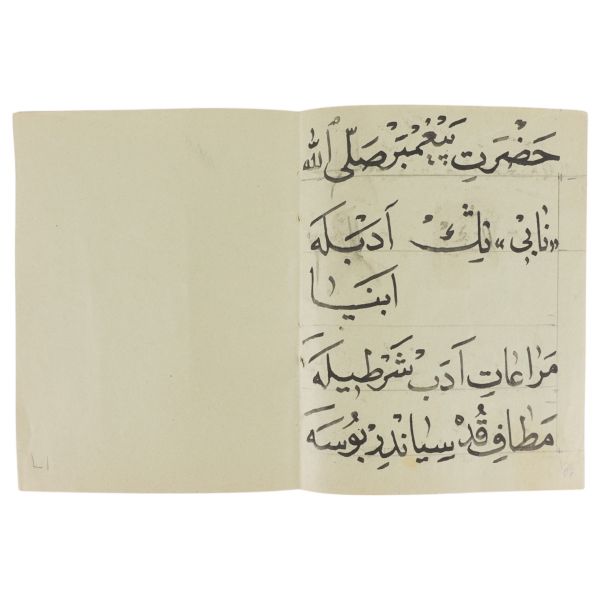 حَضْرَتِ پَيْغَمْبَر صَلّى الله
«نَابِيْ» نِڭْ اَدَبْلَه
ابنيا
مَرَاعَاتِ اَدَبْ شَرْطِيلَه
مَطَافِ قُدْسِيَانْدِرْ بُوسَه